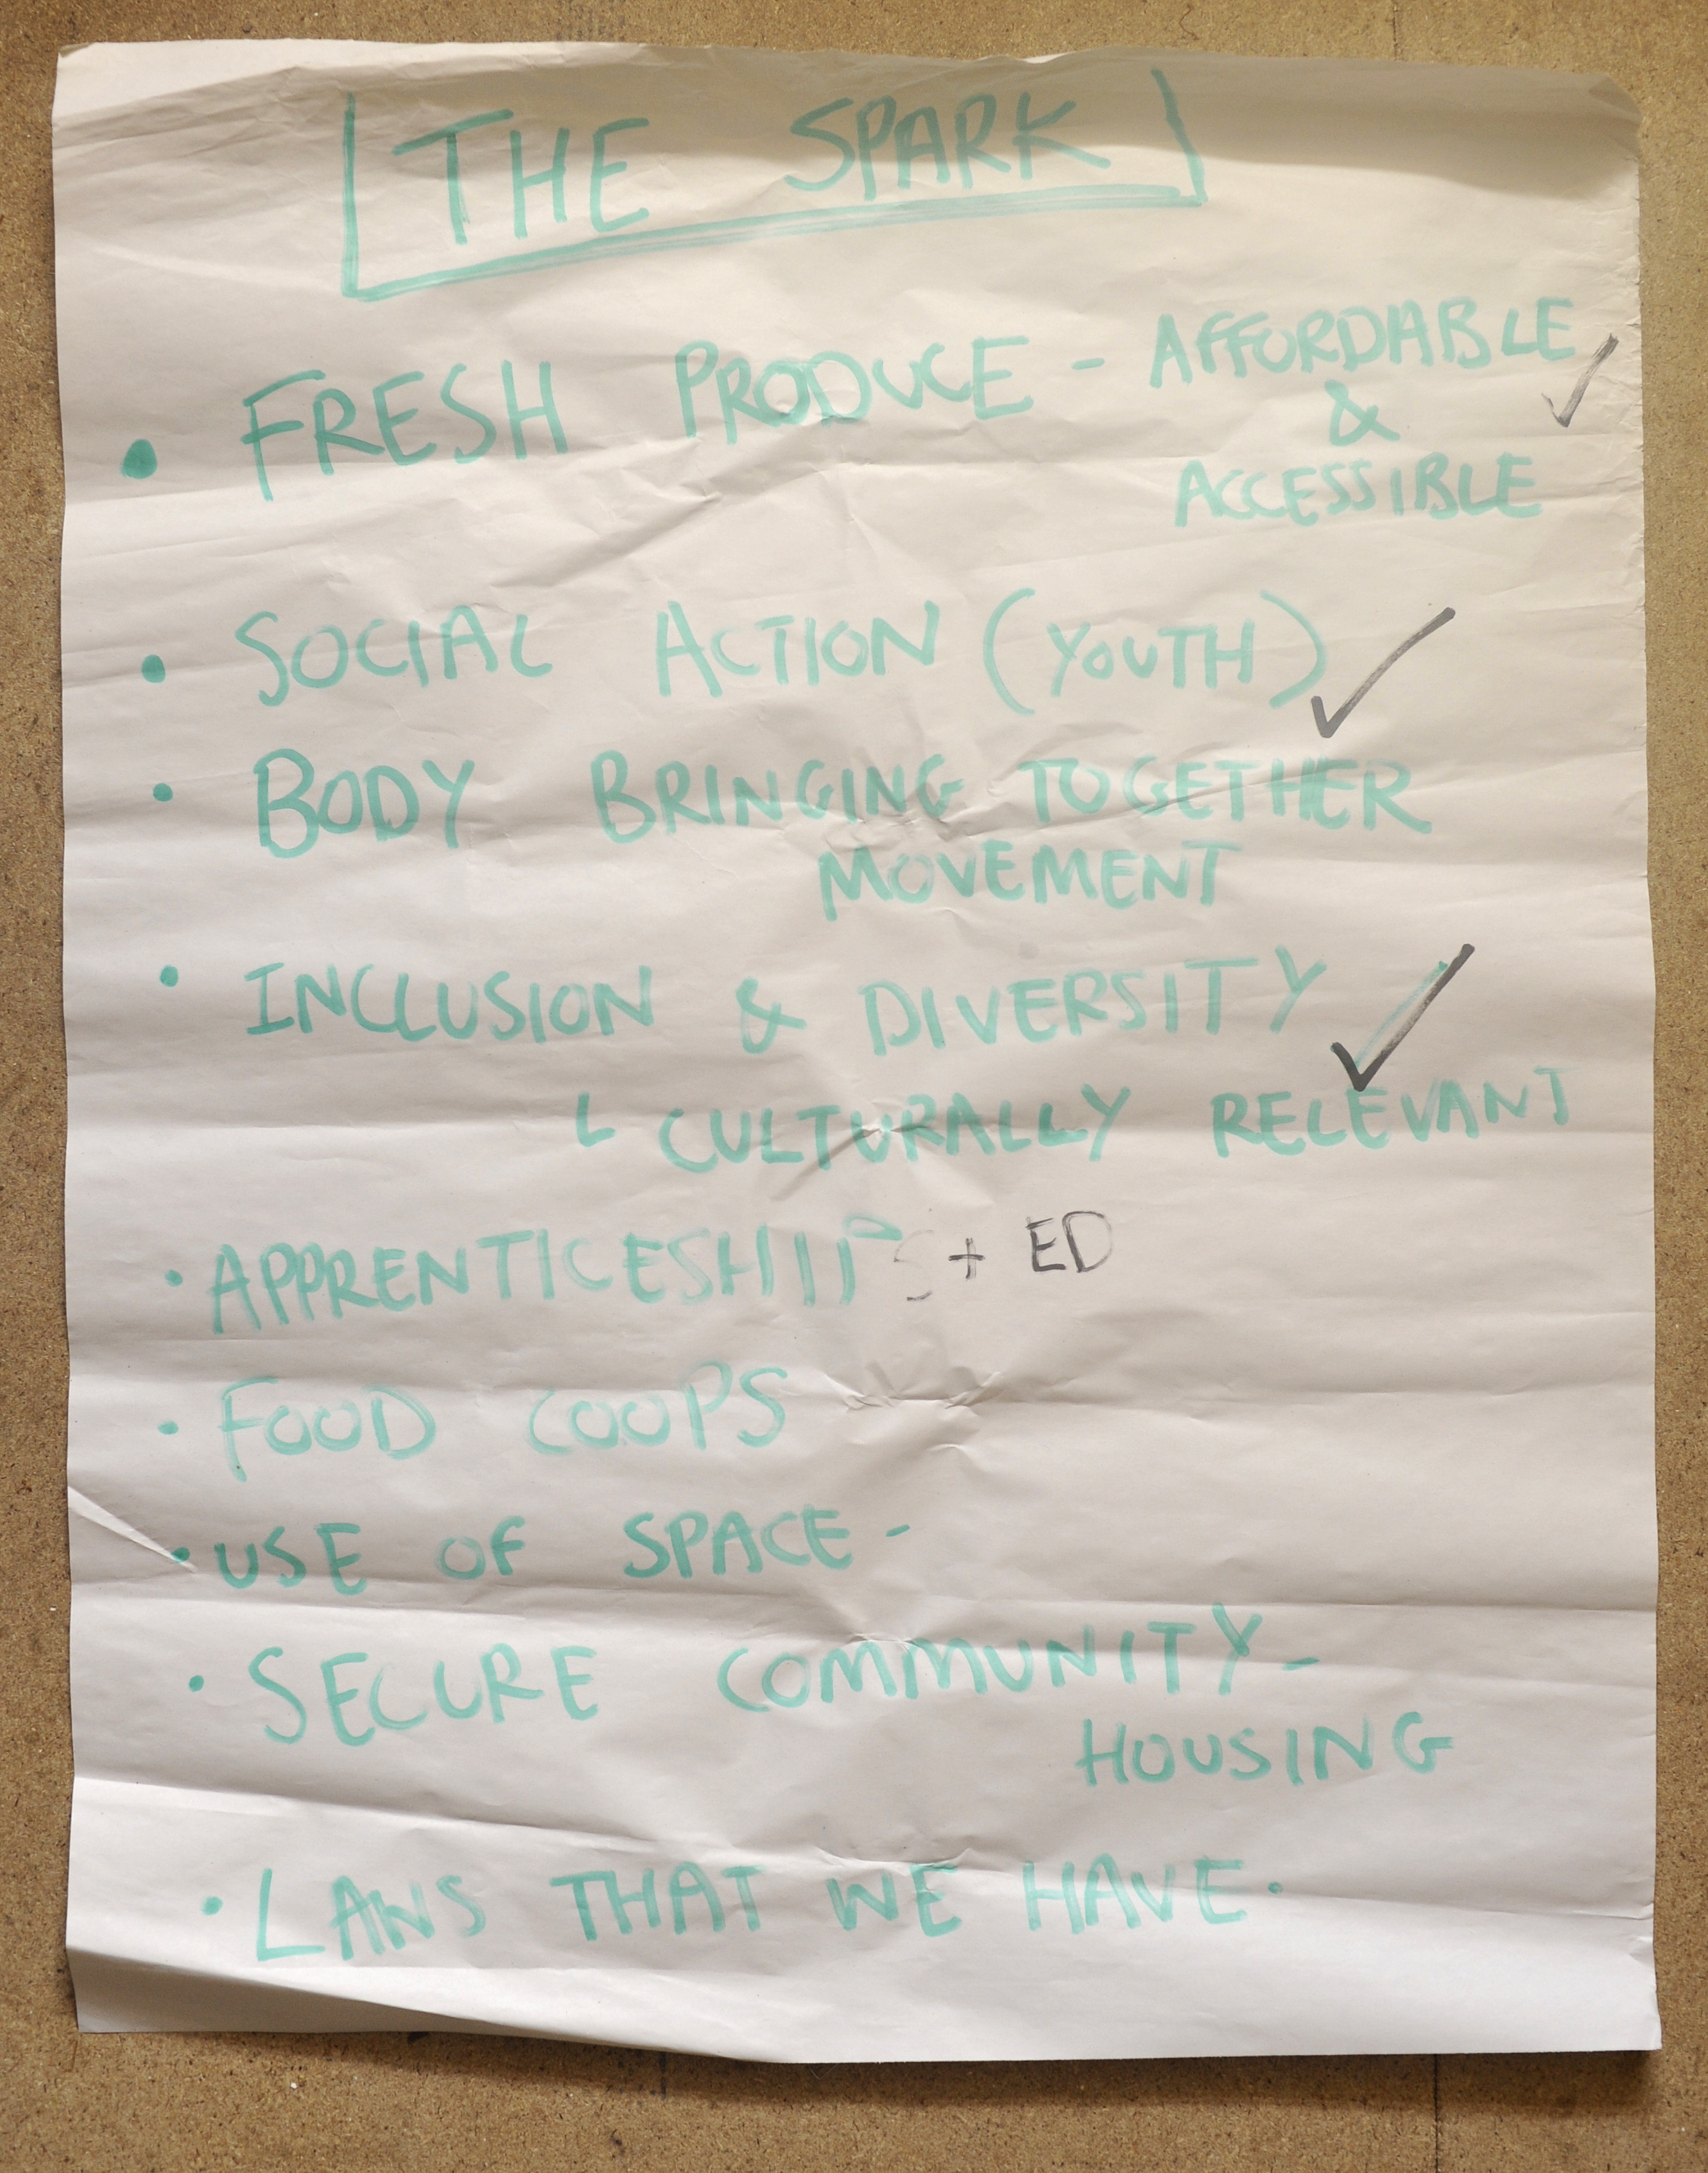 THE SPARK
• FRESH PRODUCE - AFFORDABLE
&
ACCESSIBLE ✓
• SOCIAL ACTION (YOUTH) ✓
• BODY BRINGING TOGETHER
MOVEMENT
• INCLUSION & DIVERSITY ✓
L CULTURALLY RELEVANT
• APPRENTICESHIPS + ED
• FOOD COOPS
• USE OF SPACE -
• SECURE COMMUNITY -
HOUSING
• LAWS THAT WE HAVE.